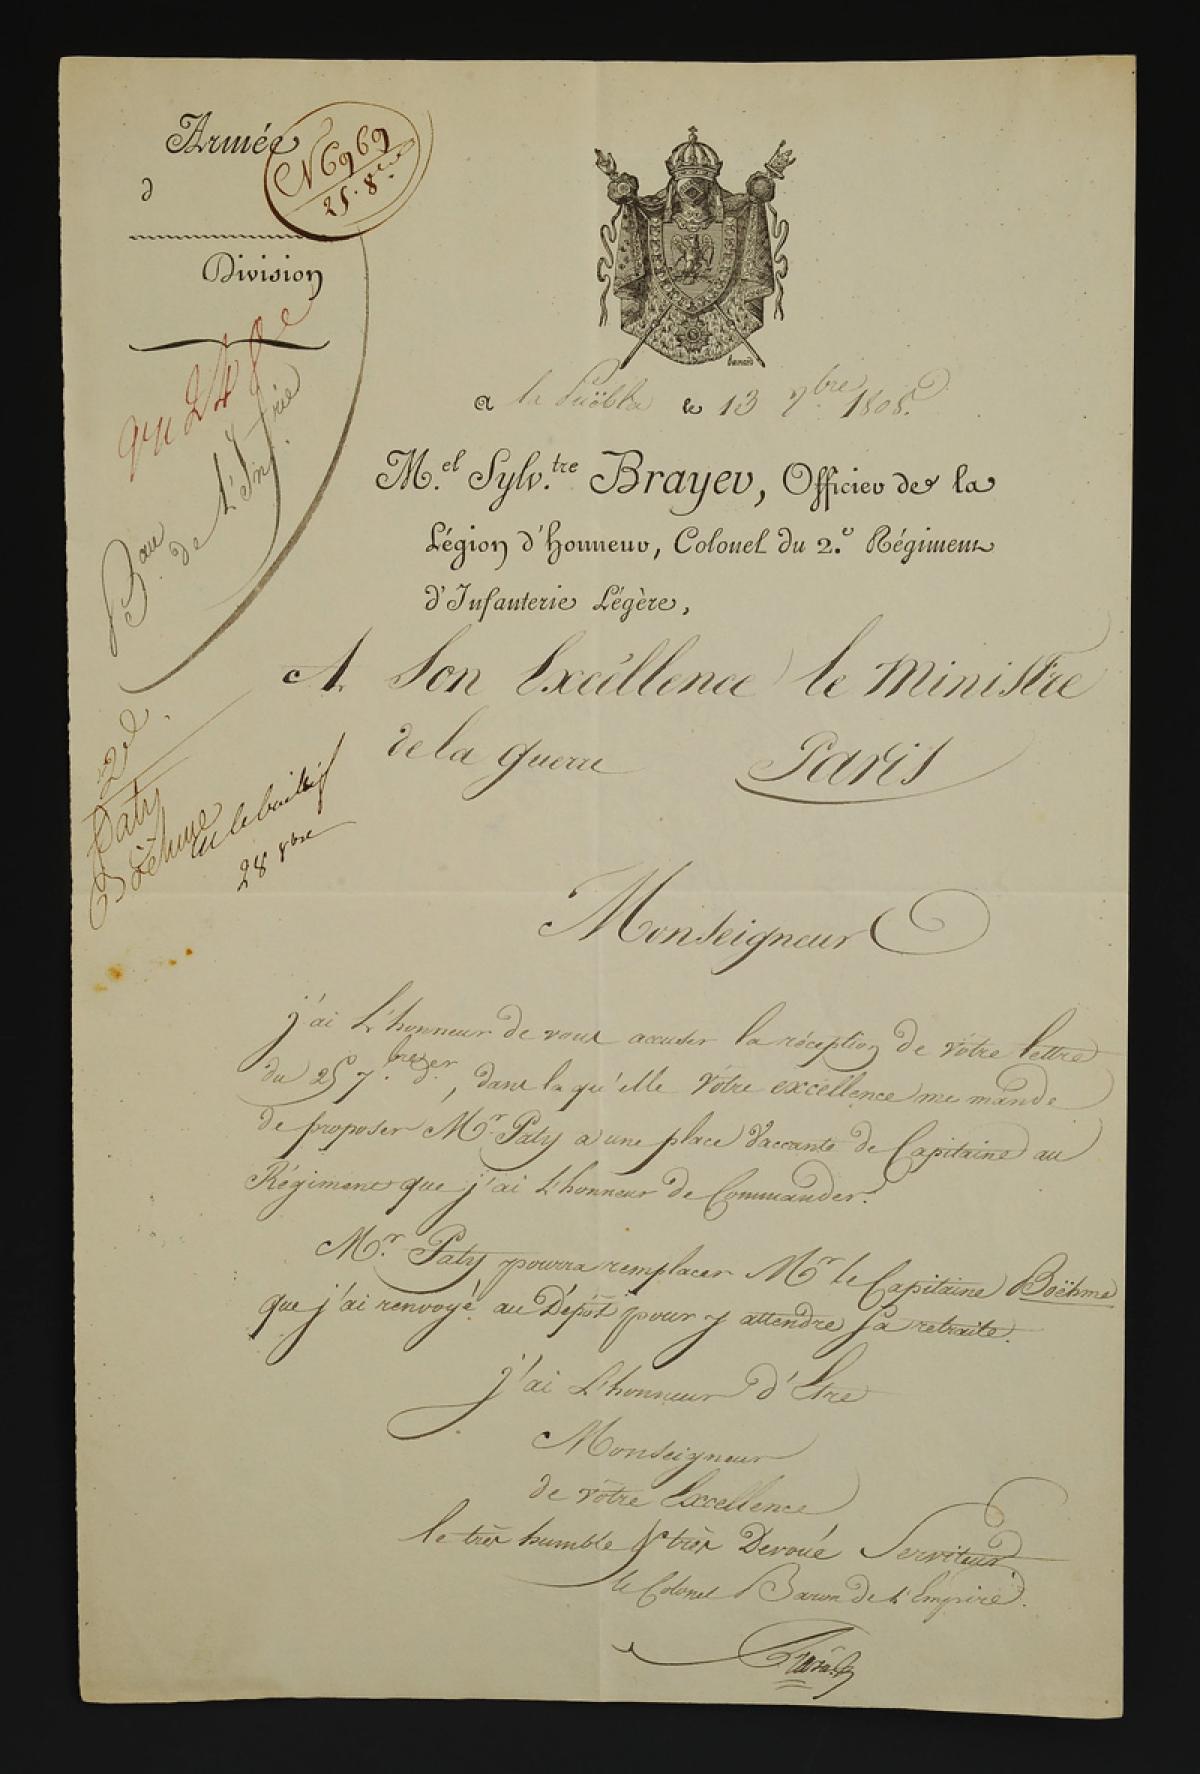 Armée
d
N 6969
25. 8bre
Division
vu 24 8e
Bau
de L'Infrie
2el.
Paty
Boëhme
28 8bre
A la Puëbla le 13 7.bre 1808.
M.el Sylv.tre Brayer, Officier de la
Légion d'honneur, Colonel du 2.e Régiment
d'Infanterie Légère,
A Son Excéllence le Ministre
de la guerre Paris
Monseigneur
j'ai L'honneur de vous accuser la réception de vôtre lettre
du 25 7.bre d.er, dans la qu'elle Vôtre excéllence me mande
de proposer M.r Paty a une place Vaccante de Capitaine au
Régiment que j'ai L'honneur de Commander.
M.r Paty pourra remplacer M.r le Capitaine Boëhme
que j'ai renvoyé au Dépôt pour y attendre sa retraite.
j'ai L'honneur d'Etre
Monseigneur
de vôtre Excellence
le très humble & très Devoué Serviteur
le Colonel Baron de L'Empire.